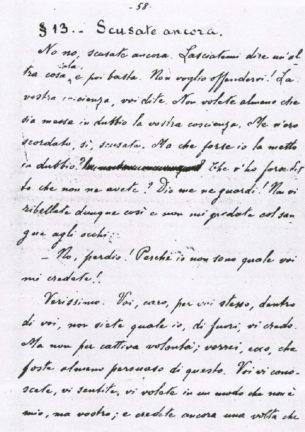 - 58 -
§ 13. - Scusate ancora.
No no, scusate ancora. Lasciatemi dire un'al-
tra cosa, e poi basta. Non voglio offendervi! La
vostra coscienza, voi dite. Non volete almeno che
sia messa in dubbio la vostra coscienza. Me n'ero
scordato, sì, scusate. Ma che forse io la metto
in dubbio? Che v'ho forse det-
to che non ne avete? Dio me ne guardi! Voi vi
ribellate dunque così e non mi gredate col san-
gue agli occhi:
- No, perdio! Perché io non sono quale voi
mi credete!
Verissimo. Voi, caro, per voi stesso, dentro
di voi, non siete quale io, di fuori, vi credo.
Ma non per cattiva volontà; vorrei, ecco, che
foste almeno persuaso di questo. Voi vi cono-
scete, vi sentite, vi volete in un modo che non è
mio, ma vostro; e credete ancora una volta che